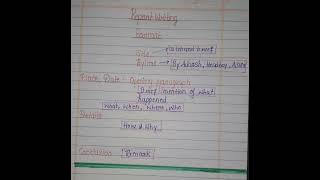 Report Writing
Format
Title
Byline By Aakash,
Place, Date - Opening paragraph
Brief mention of what
happened
What, When, Where, Who
How & Why
Conclusion Remark